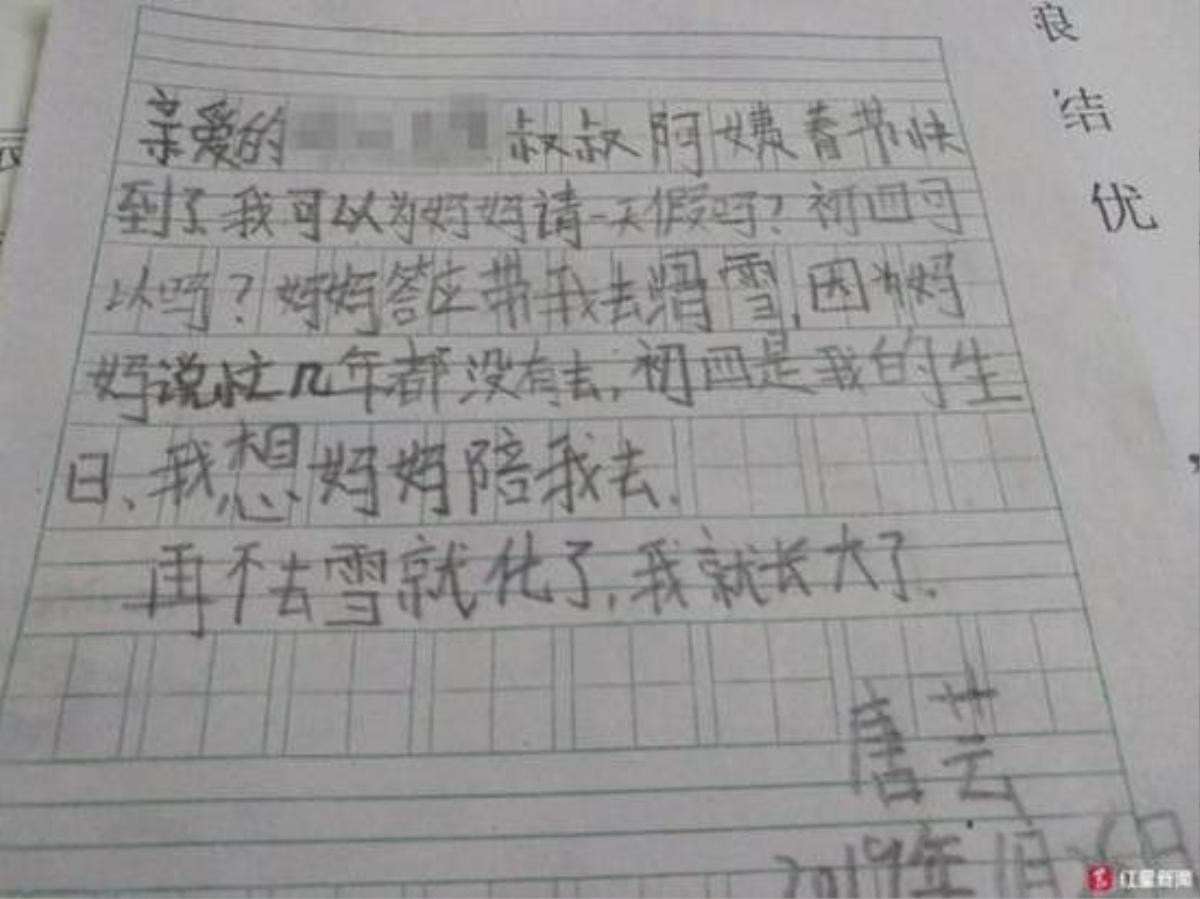 亲爱的 叔叔阿姨春节快
到了我可以为妈妈请一天假吗？初四可
以吗？妈妈答应带我去滑雪,因为妈
妈说忙几年都没有去,初四是我的生
日、我想妈妈陪我去.
再不去雪就化了,我就长大了.
唐芸
2019年1月
浪
结
优
红星新闻